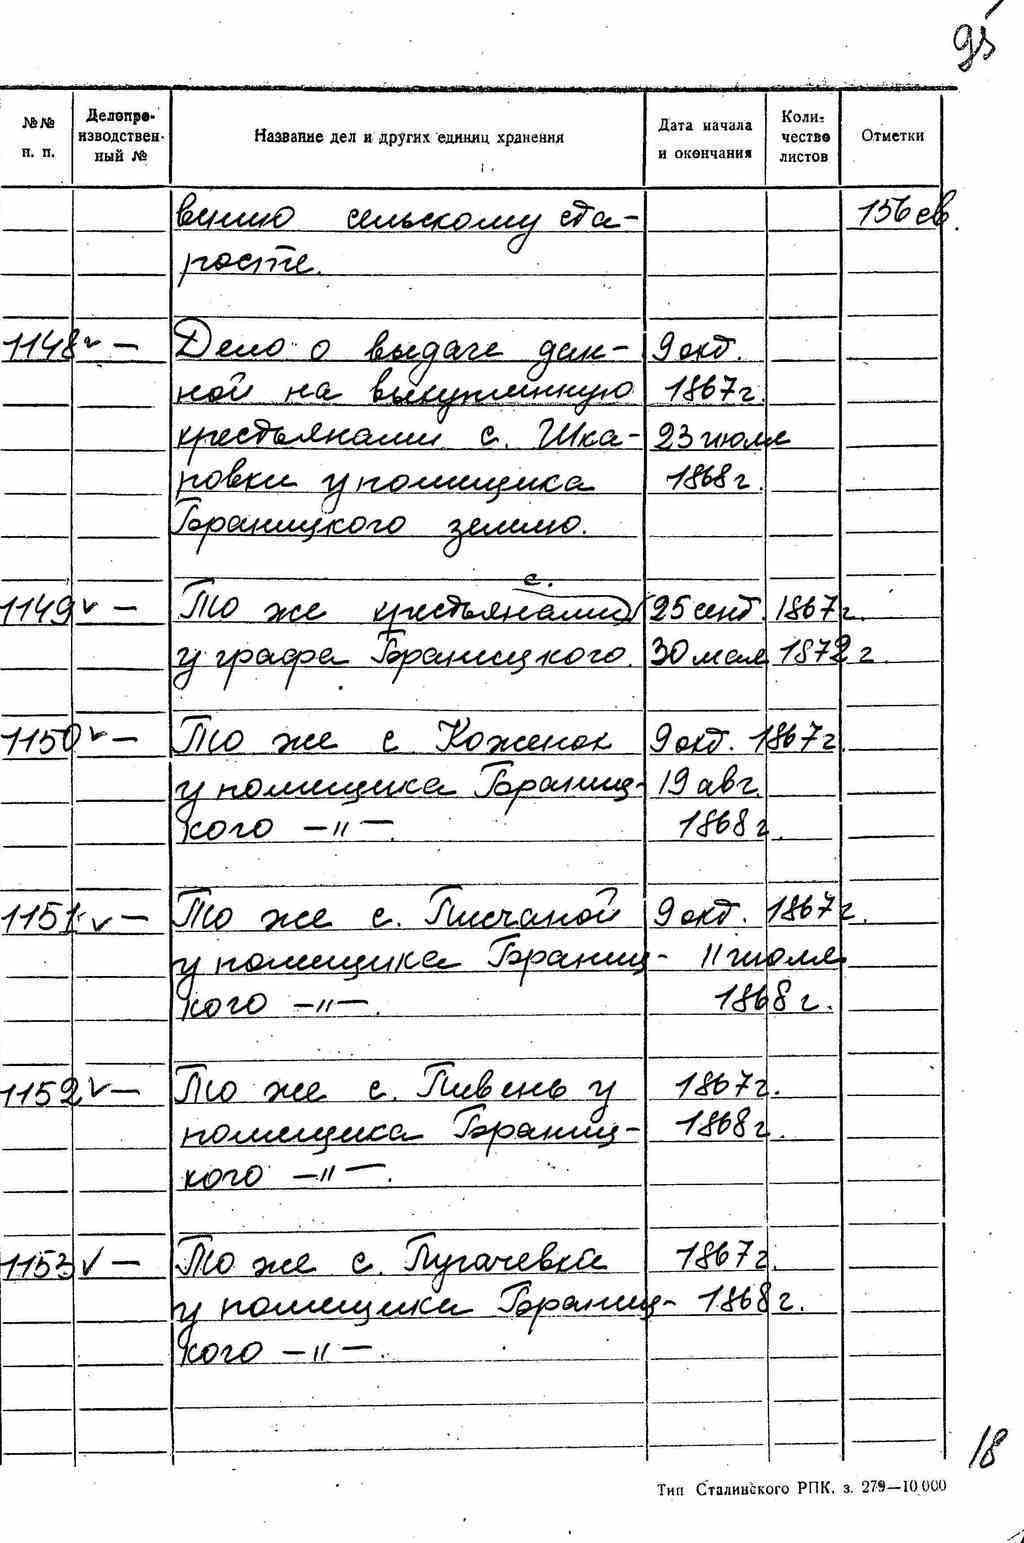 95
№№ п. п.
Делопроизводственный №
Название дел и других единиц хранения
Дата начала и окончания
Количество листов
Отметки
вению сельскому ста- 156 св.
росте.
1148 ✓ — Дело о выдаче дан- 9 окт.
ной на выкупленную 1867 г.
крестьянами с. Шка- 23 июля
ровки у помещика 1868 г.
Браницкого землю.
с.
1149 ✓ — То же крестьянами 25 сент. 1867 г.
у графа Браницкого. 30 мая 1872 г.
1150 ✓ — То же с. Коженок 9 окт. 1867 г.
у помещика Браниц- 19 авг.
кого —〃—. 1868 г.
1151 ✓ — То же с. Писчаной 9 окт. 1867 г.
у помещика Браниц- 11 июля
кого —〃—. 1868 г.
1152 ✓ — То же с. Пивень у 1867 г.
помещика Браниц- 1868 г.
кого —〃—.
1153 ✓ — То же с. Пугачевка 1867 г.
у помещика Браниц- 1868 г.
кого —〃—.
18
Тип Сталинского РПК. з. 279—10 000